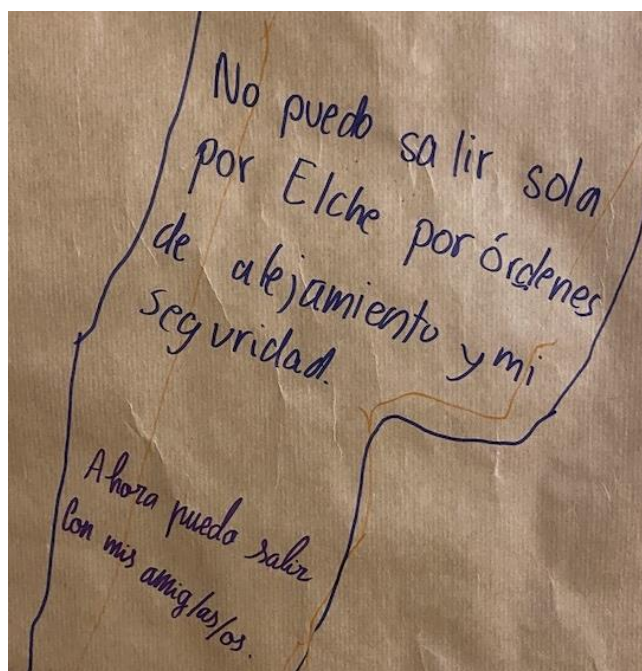 No puedo salir sola
por Elche por órdenes
de alejamiento y mi
seguridad.
Ahora puedo salir
Con mis amig/as/os.